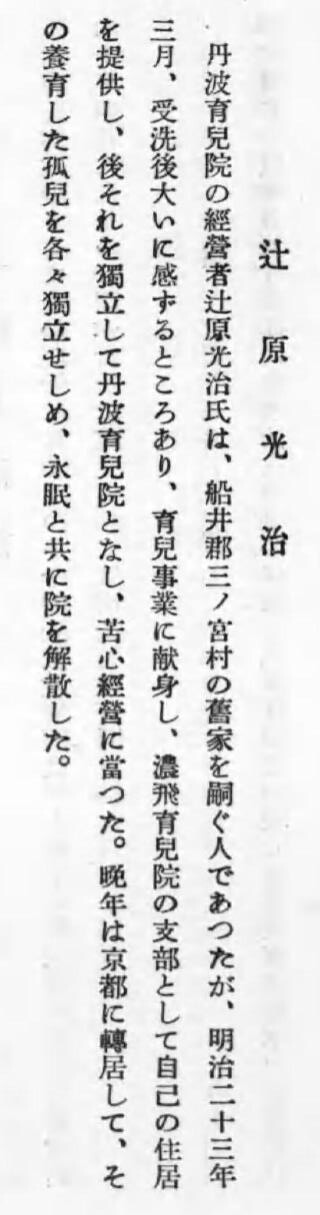 辻原光治
丹波育兒院の經營者辻原光治氏は、船井郡三ノ宮村の舊家を嗣ぐ人であつたが、明治二十三年
三月、受洗後大いに感ずるところあり、育兒事業に献身し、濃飛育兒院の支部として自己の住居
を提供し、後それを獨立して丹波育兒院となし、苦心經營に當つた。晩年は京都に轉居して、そ
の養育した孤兒を各々獨立せしめ、永眠と共に院を解散した。